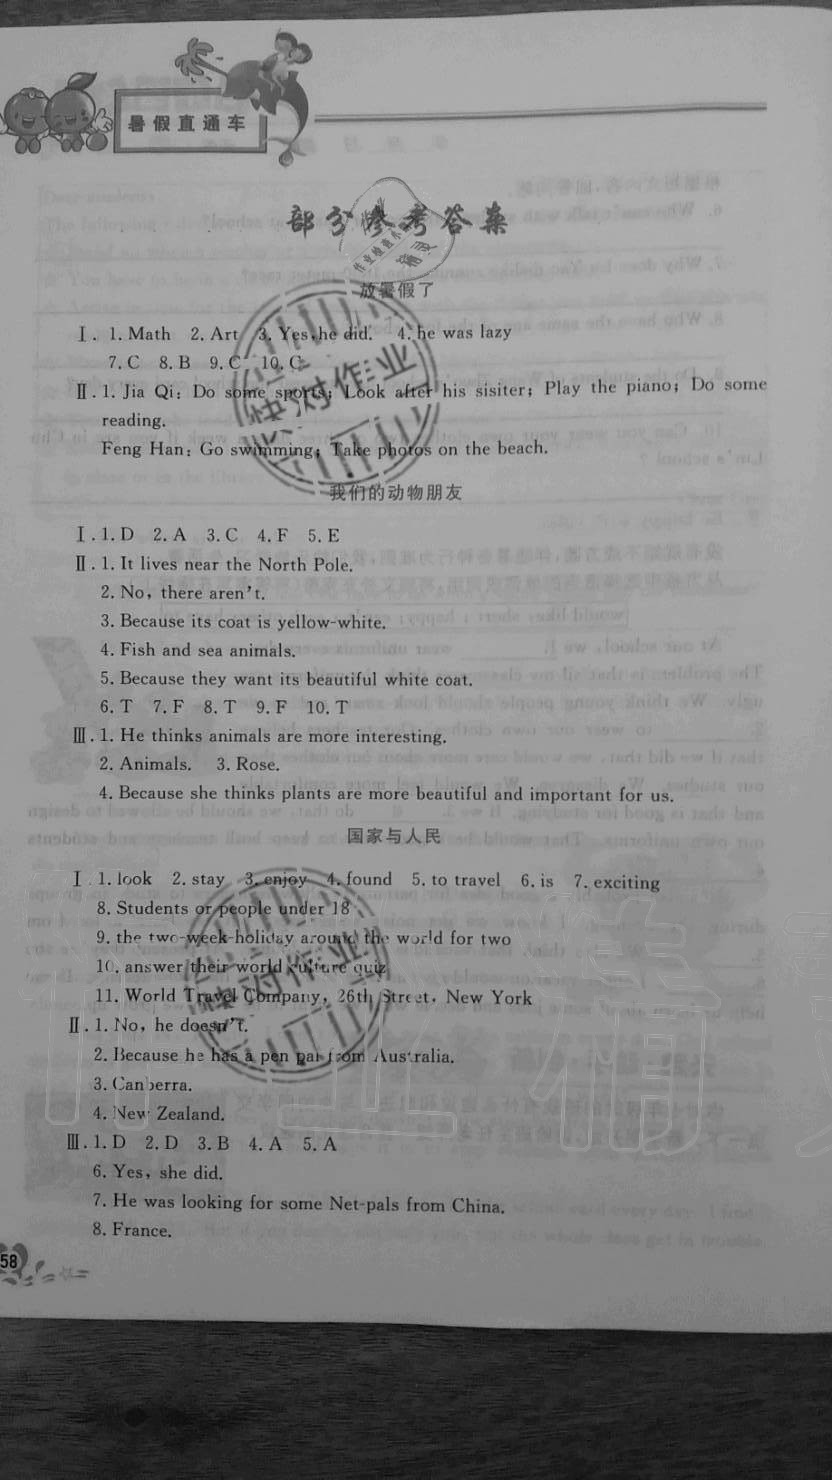 暑假直通车
部分参考答案
放暑假了
Ⅰ. 1. Math 2. Art 3. Yes, he did. 4. he was lazy
7. C 8. B 9. C 10. C
Ⅱ. 1. Jia Qi: Do some sports; Look after his sisiter; Play the piano; Do some
reading.
Feng Han: Go swimming; Take photos on the beach.
我们的动物朋友
Ⅰ. 1. D 2. A 3. C 4. F 5. E
Ⅱ. 1. It lives near the North Pole.
2. No, there aren't.
3. Because its coat is yellow-white.
4. Fish and sea animals.
5. Because they want its beautiful white coat.
6. T 7. F 8. T 9. F 10. T
Ⅲ. 1. He thinks animals are more interesting.
2. Animals. 3. Rose.
4. Because she thinks plants are more beautiful and important for us.
国家与人民
Ⅰ. 1. look 2. stay 3. enjoy 4. found 5. to travel 6. is 7. exciting
8. Students or people under 18
9. the two-week-holiday around the world for two
10. answer their world culture quiz
11. World Travel Company, 26th Street, New York
Ⅱ. 1. No, he doesn't.
2. Because he has a pen pal from Australia.
3. Canberra.
4. New Zealand.
Ⅲ. 1. D 2. D 3. B 4. A 5. A
6. Yes, she did.
7. He was looking for some Net-pals from China.
8. France.
58
快对作业
快对作业